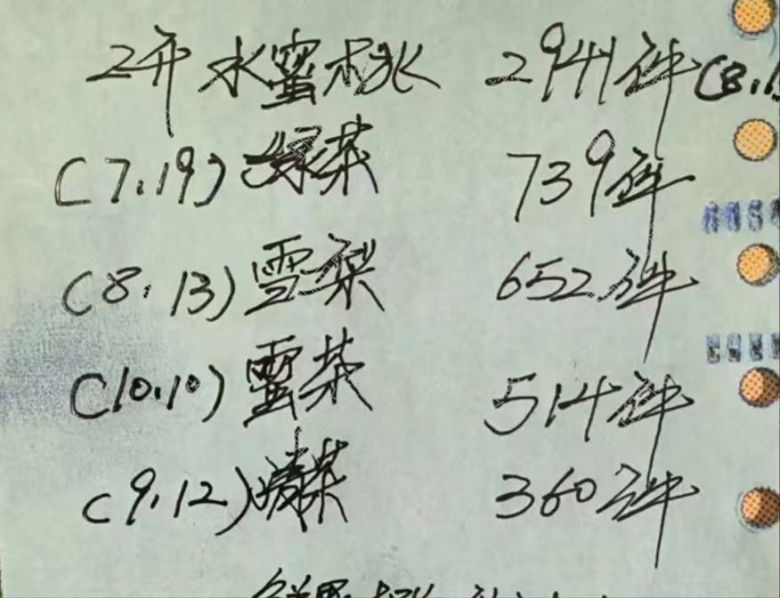 2升 水蜜桃 2941件 (8.1
(7.19) 绿茶 739件
(8.13) 雪梨 652件
(10.10) 雪茶 514件
(9.12) 茶 360件